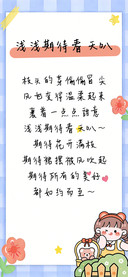 浅浅期待春天叭
枝头的芽偷偷冒尖
风也变得温柔起来
裹着一点点甜意
浅浅期待春天叭~
期待花开满枝
期待裙摆被风吹起
期待所有的美好
都如约而至~